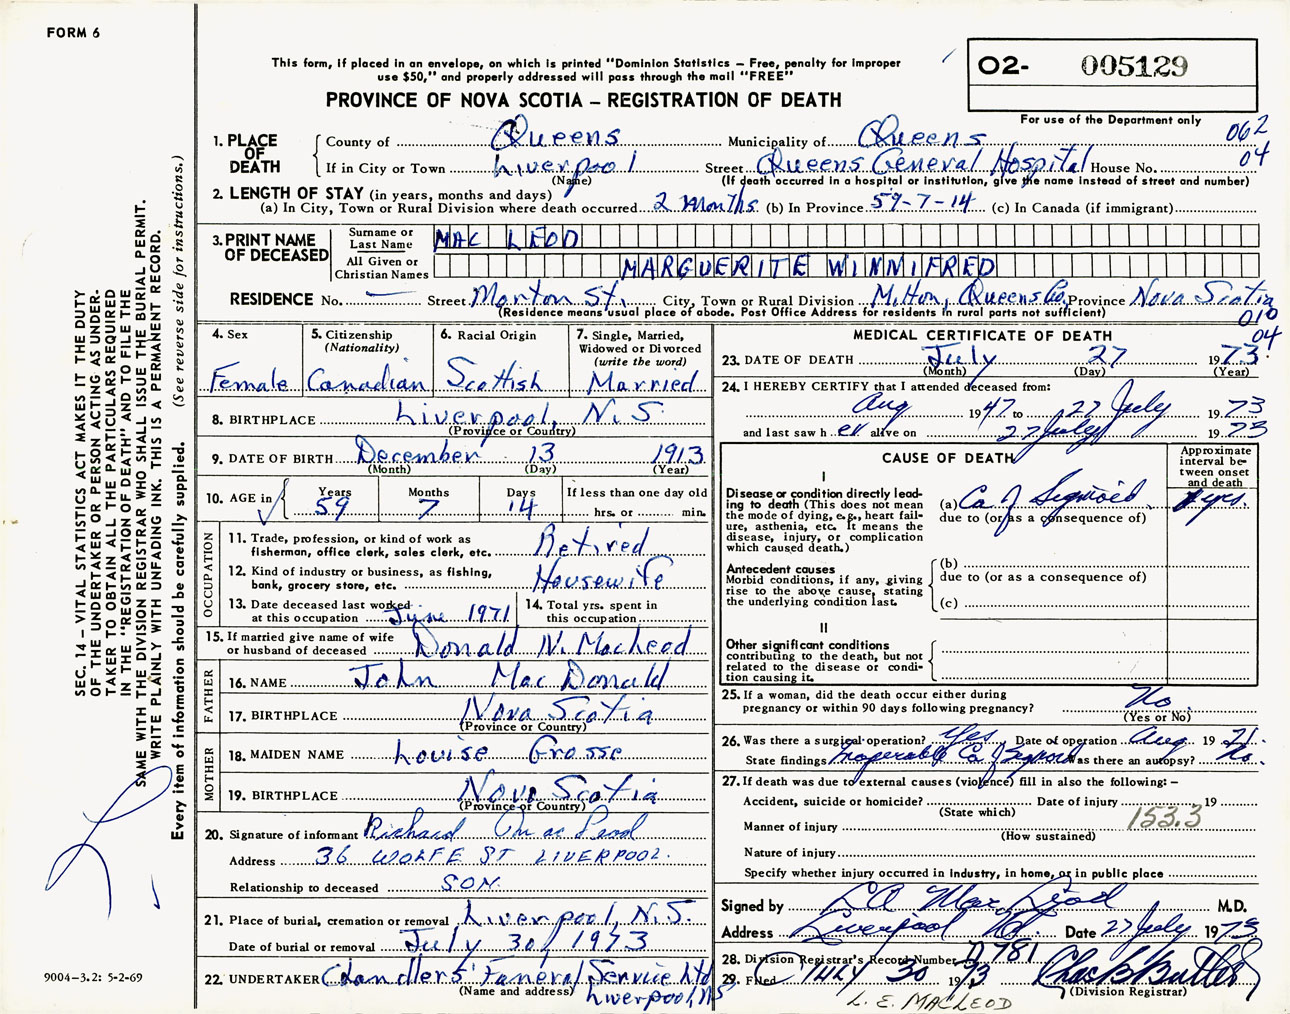 FORM 6
This form, if placed in an envelope, on which is printed "Dominion Statistics – Free, penalty for improper
use $50," and properly addressed will pass through the mail "FREE"
PROVINCE OF NOVA SCOTIA – REGISTRATION OF DEATH
O2- 005129
For use of the Department only
062
04
1. PLACE OF DEATH
County of Queens Municipality of Queens
If in City or Town Liverpool Street Queens General Hospital House No.
(Name) (If death occurred in a hospital or institution, give the name instead of street and number)
2. LENGTH OF STAY (in years, months and days)
(a) In City, Town or Rural Division where death occurred 2 Months (b) In Province 59-7-14 (c) In Canada (if immigrant)
3. PRINT NAME OF DECEASED
Surname or Last Name MAC LEOD
All Given or Christian Names MARGUERITE WINNIFRED
RESIDENCE No. — Street Morton St. City, Town or Rural Division Milton, Queens Co. Province Nova Scotia
(Residence means usual place of abode. Post Office Address for residents in rural parts not sufficient)
010
04
4. Sex Female
5. Citizenship (Nationality) Canadian
6. Racial Origin Scottish
7. Single, Married, Widowed or Divorced (write the word) Married
8. BIRTHPLACE Liverpool, N.S.
(Province or Country)
9. DATE OF BIRTH December 13 1913
(Month) (Day) (Year)
10. AGE in Years 59 Months 7 Days 14 If less than one day old hrs. or min.
OCCUPATION
11. Trade, profession, or kind of work as fisherman, office clerk, sales clerk, etc. Retired
12. Kind of industry or business, as fishing, bank, grocery store, etc. Housewife
13. Date deceased last worked at this occupation June 1971
14. Total yrs. spent in this occupation
15. If married give name of wife or husband of deceased Donald N. MacLeod
FATHER
16. NAME John MacDonald
17. BIRTHPLACE Nova Scotia
(Province or Country)
MOTHER
18. MAIDEN NAME Louise Crosse
19. BIRTHPLACE Nova Scotia
(Province or Country)
20. Signature of informant Richard MacLeod
Address 36 WOLFE ST LIVERPOOL.
Relationship to deceased SON.
21. Place of burial, cremation or removal Liverpool, N.S.
Date of burial or removal July 30, 1973
22. UNDERTAKER Chandlers' Funeral Service Ltd
(Name and address) Liverpool, NS
MEDICAL CERTIFICATE OF DEATH
23. DATE OF DEATH July 27 1973.
(Month) (Day) (Year)
24. I HEREBY CERTIFY that I attended deceased from:
Aug 1947 to 27 July 1973
and last saw h er alive on 27 July 1973
CAUSE OF DEATH
Approximate interval between onset and death
I
Disease or condition directly leading to death (This does not
mean the mode of dying, e.g., heart failure, asthenia, etc. It means the
disease, injury, or complication
which caused death.)
(a) Ca of Sigmoid yrs.
due to (or as a consequence of)
Antecedent causes
Morbid conditions, if any, giving
rise to the above cause, stating
the underlying condition last.
(b)
due to (or as a consequence of)
(c)
II
Other significant conditions
contributing to the death, but not
related to the disease or condition causing it.
25. If a woman, did the death occur either during
pregnancy or within 90 days following pregnancy? No
(Yes or No)
26. Was there a surgical operation? Yes Date of operation Aug 1971.
State findings Inoperable Ca of Sigmoid Was there an autopsy? No.
27. If death was due to external causes (violence) fill in also the following: –
Accident, suicide or homicide? Date of injury 19
(State which)
153.3
Manner of injury
(How sustained)
Nature of injury
Specify whether injury occurred in industry, in home, or in public place
Signed by MacLeod M.D.
Address Liverpool NS. Date 27 July 1973
28. Division Registrar's Record Number D 781
29. Filed July 30 1973 Chas B Butler
(Division Registrar)
L. E. MACLEOD
SEC. 14 – VITAL STATISTICS ACT MAKES IT THE DUTY
OF THE UNDERTAKER OR PERSON ACTING AS UNDER-
TAKER TO OBTAIN ALL THE PARTICULARS REQUIRED
IN THE "REGISTRATION OF DEATH" AND TO FILE THE
SAME WITH THE DIVISION REGISTRAR WHO SHALL ISSUE THE BURIAL PERMIT.
WRITE PLAINLY WITH UNFADING INK. THIS IS A PERMANENT RECORD.
Every item of information should be carefully supplied. (See reverse side for instructions.)
9004–3.2: 5-2-69